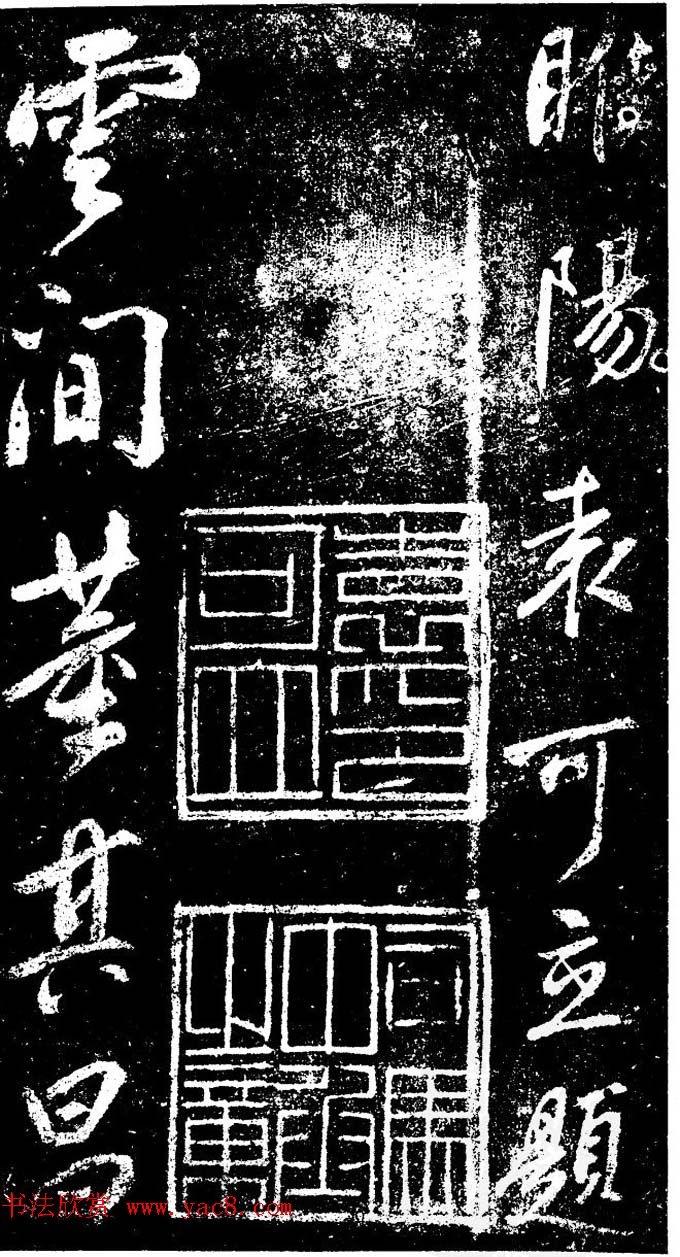 睢陽袁可立題
袁印可立
雲間董其昌
书法欣赏 www.yac8.com